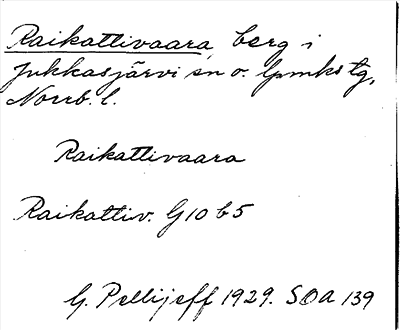 Raikattivaara, berg i
Jukkasjärvi sn o. lpmks tg,
Norrb. l.
Raikattivaara
Raikattiv. G10 b5
G. Pellijeff 1929. SOA 139